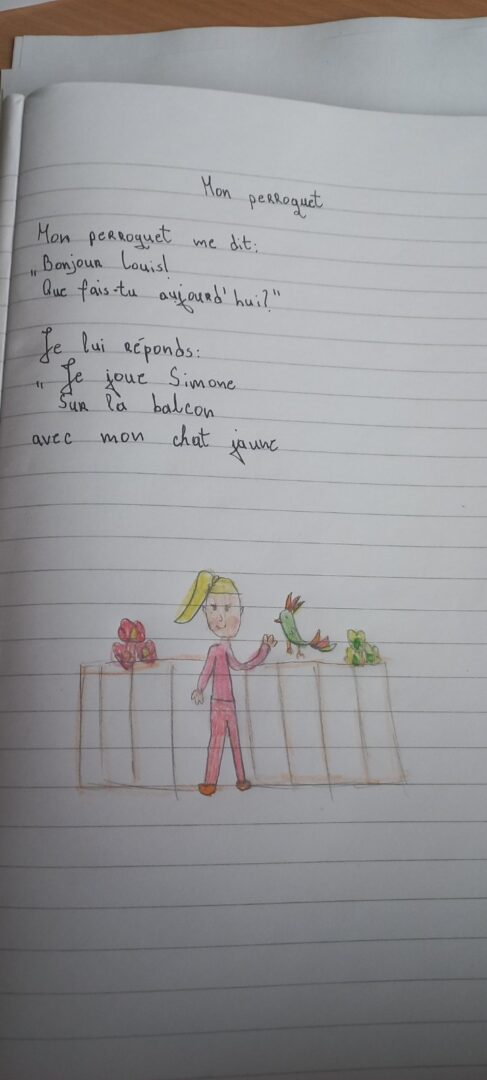 Mon perroquet
Mon perroquet me dit:
„Bonjour Louis!
Que fais-tu aujourd'hui?"
Je lui réponds:
„Je joue Simone
sur la balcon
avec mon chat jaune